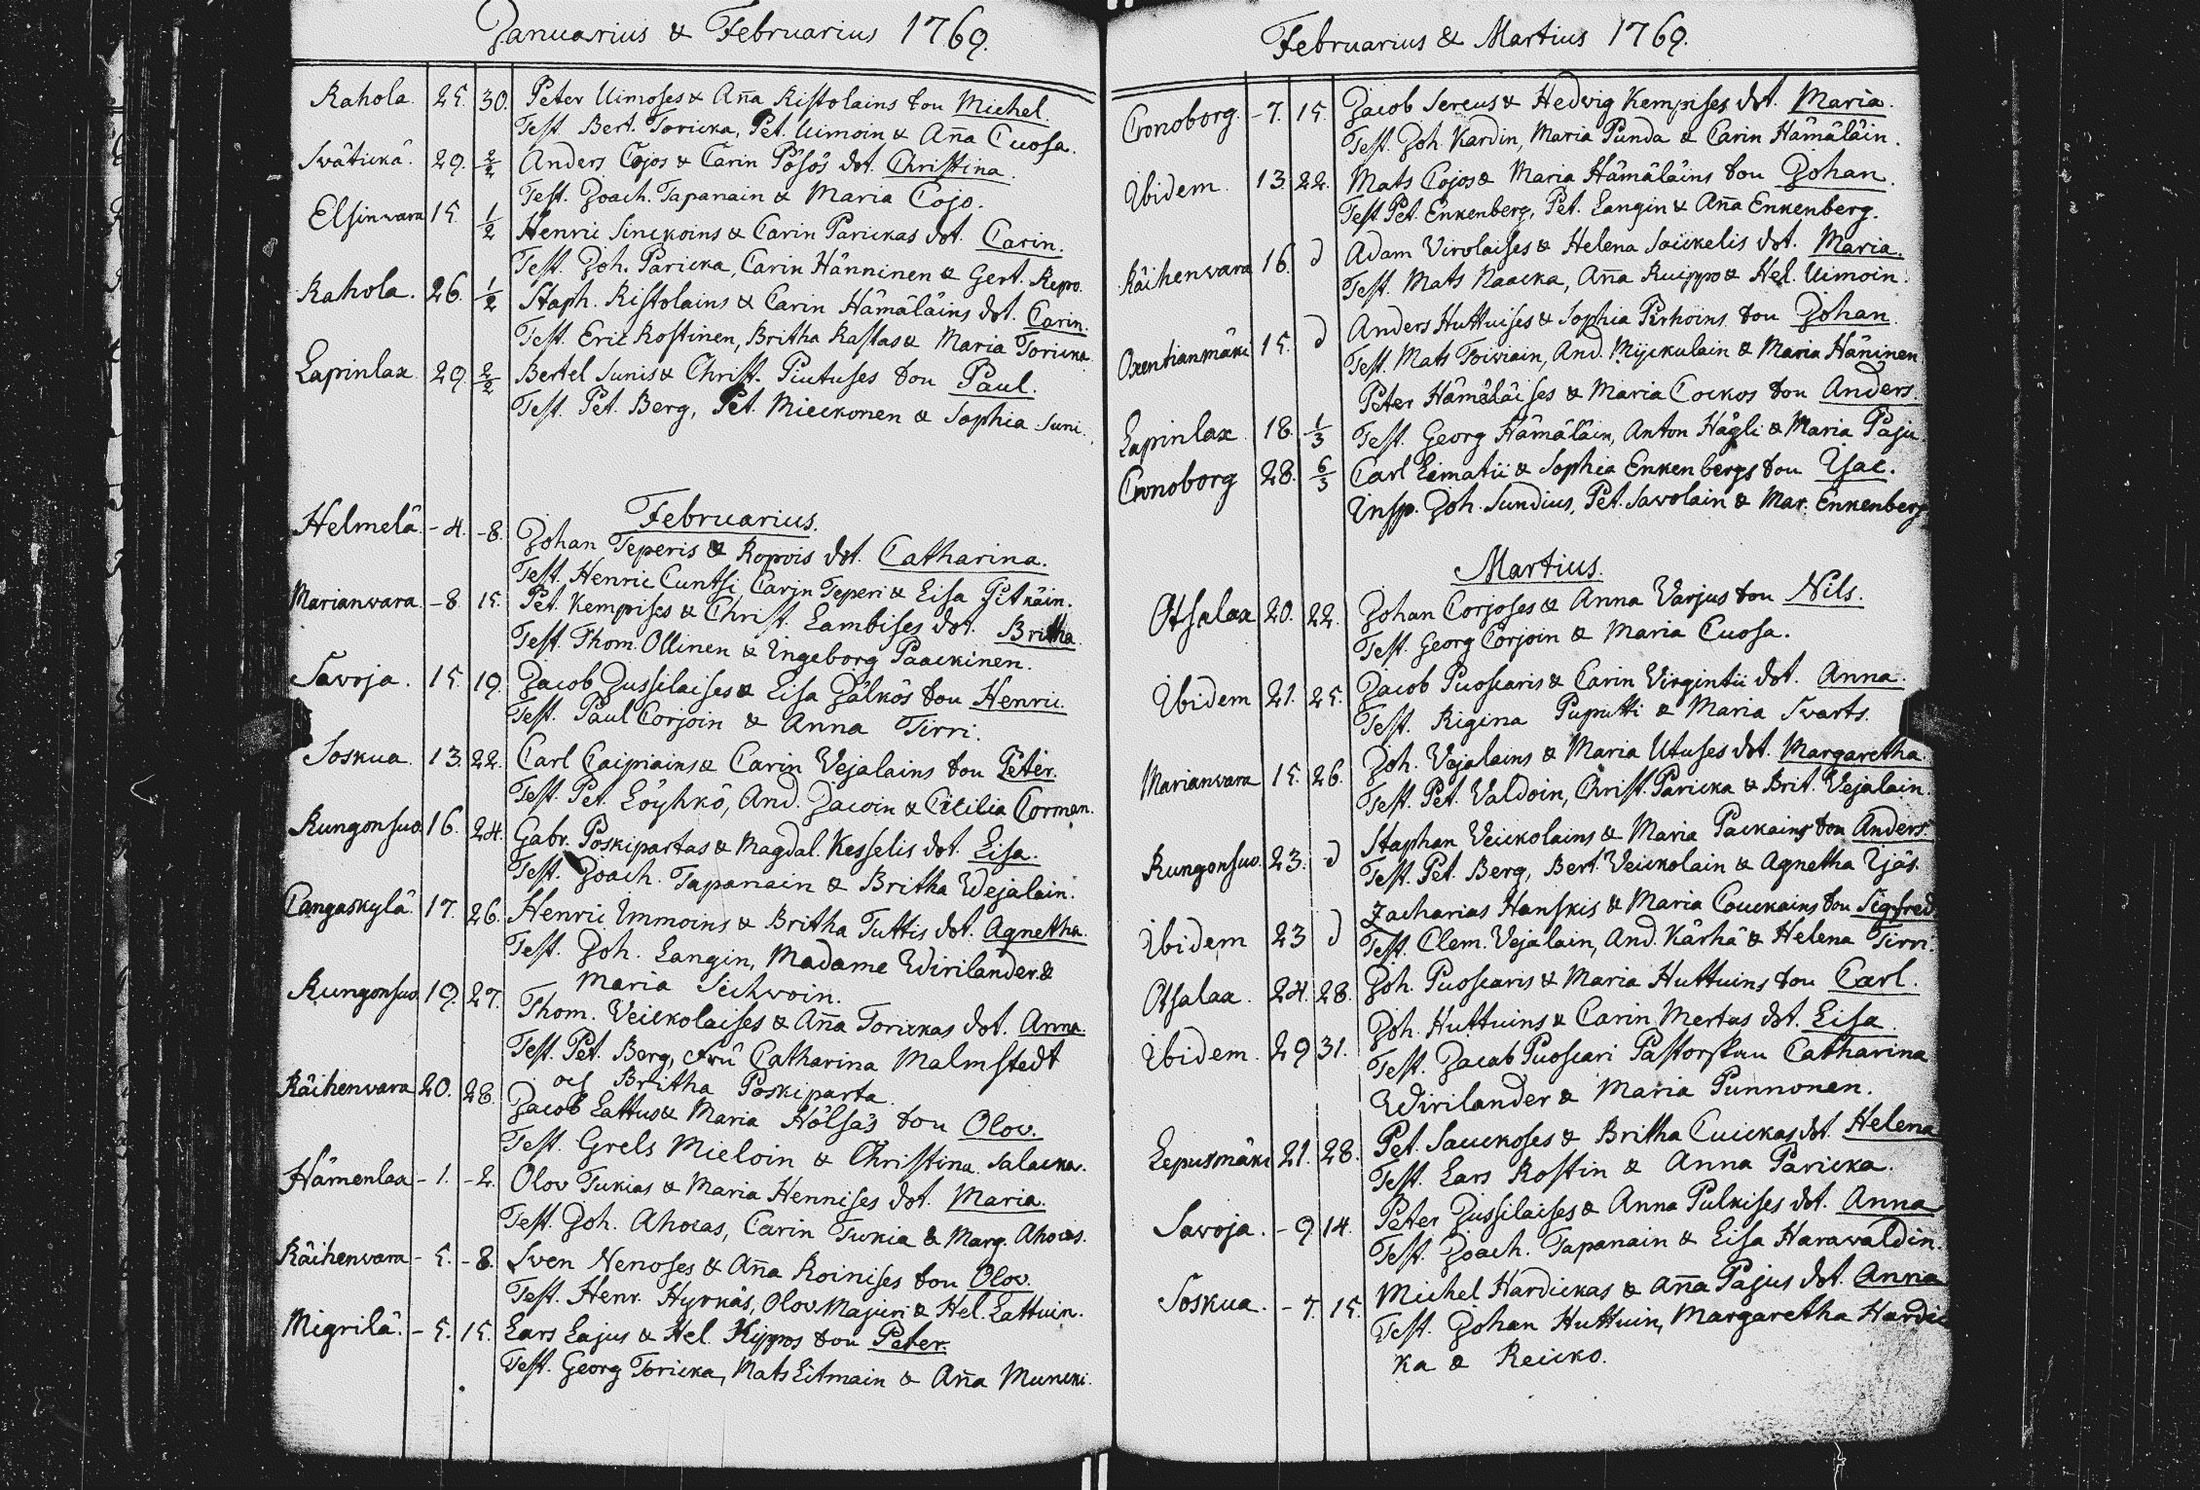 Januarius & Februarius 1769.
Rahola. 25. 30. Peter Uimoses & Aña Ristolains son Michel.
Test. Bert. Toricka, Pet. Uimoin & Aña Cuosa.
Svätickä. 29. 2/2 Anders Cojos & Carin Pösös dot. Christina.
Test. Joach. Tapanain & Maria Cojo.
Elsinwara 15 1/2 Henric Sinckoins & Carin Parickas dot. Carin.
Test. Joh. Paricka, Carin Hänninen & Gert. Repo.
Rahola. 26. 1/2 Staph. Ristolains & Carin Hämäläins dot. Carin.
Test. Eric Rostinen, Britha Rastas & Maria Toricka
Lapinlax 29 2/2 Bertel Sunis & Christ. Piutuses son Paul.
Test. Pet. Berg, Pet. Mieckonen & Sophia Suni.
Februarius.
Helmelä - 4. - 8. Johan Teperis & Ropois dot. Catharina.
Test. Henric Cuntsi, Carin Teperi & Lisa Pitkäin.
Marianwara. - 8 15. Pet. Kempises & Christ. Lambises dot. Britha
Test. Thom. Ollinen & Ingeborg Paackinen.
Savoja. 15. 19. Jacob Jussilaises & Lisa Jälkös son Henric.
Test. Paul Corjoin & Anna Tirri.
Soskua. 13. 22. Carl Caipiains & Carin Vejalains son Peter.
Test. Pet. Löyhkö, And. Jacoin & Cicilia Corman.
Kungonsuo. 16. 24. Gabr. Poskipartas & Magdal. Kesselis dot. Lisa.
Test. Joach. Tapanain & Britha Wejalain.
Cangaskylä. 17. 26. Henric Immoins & Britha Tuttis dot. Agnetha.
Test. Joh. Langin, Madame Wirilander &
Maria Sickwoin.
Kungonsuo 19. 27. Thom. Veickolaises & Aña Torickas dot. Anna.
Test. Pet. Berg, Fru Catharina Malmstedt
och Britha Poskiparta.
Räihenvara 20. 28. Jacob Lattus & Maria Hölsäs son Olov.
Test. Grels Mieloin & Christina Salacka.
Hämenlax - 1. - 2. Olov Tukias & Maria Hennises dot. Maria.
Test. Joh. Ahocas, Carin Tukia & Marg. Ahocas.
Räihenvara - 5. - 8. Sven Nenoses & Aña Roinises son Olov.
Test. Henr. Hyrkäs, Olov Majuri & Hel. Lattuin.
Migrilä. - 5. 15. Lars Lajus & Hel. Kippos son Peter.
Test. Georg Toricka, Mats Litmain & Aña Muncki.
Februarius & Martius 1769.
Cronoborg. - 7. 15. Jacob Sereus & Hedvig Kempises dot. Maria.
Test. Joh. Kardin, Maria Punda & Carin Hämäläin.
Ibidem. 13. 22. Mats Cojos & Maria Hämäläins son Johan.
Test. Pet. Enkenberg, Pet. Langin & Aña Enkenberg.
Räihenvara 16. d Adam Virolaises & Helena Saickelis dot. Maria.
Test. Mats Naacka, Aña Ruippo & Hel. Uimoin.
Oxentianmäki 15. d Anders Huttuises & Sophia Pirhoins son Johan.
Test. Mats Toiviain, And. Myckulain & Maria Häninen
Peter Hämäläises & Maria Cockos son Anders.
Lapinlax 18. 1/3 Test. Georg Hämäläin, Anton Hägli & Maria Paju
Cronoborg 28. 6/3 Carl Limatii & Sophia Enkenbergs son Isac.
Insp. Joh. Sundius, Pet. Savolain & Mar. Enkenberg
Martius.
Otsalax 20. 22. Johan Corjoses & Anna Varjus son Nils.
Test. Georg Corjoin & Maria Cuosa.
Ibidem 21. 25. Jacob Puoscaris & Carin Virgintii dot. Anna.
Test. Rigina Puputti & Maria Svarts.
Marianvara 15. 26. Joh. Vejalains & Maria Utuses dot. Margaretha
Test. Pet. Valdoin, Christ. Paricka & Brit. Vejalain.
Kungonsuo. 23. d Staphan Veickolains & Maria Packains son Anders.
Test. Pet. Berg, Bert. Veickolain & Agnetha Ijäs.
Zacharias Hanskis & Maria Couckains son Sigfred
Ibidem 23 d Test. Clem. Vejalain, And. Kärhä & Helena Tirri.
Otsalax. 24. 28. Joh. Puoscaris & Maria Huttuins son Carl.
Joh. Huttuins & Carin Mertas dot. Lisa.
Ibidem. 29 31. Test. Jacob Puoscari Pastorskan Catharina
Wirilander & Maria Punnonen.
Lepusmäki 21. 28. Pet. Sauckoses & Britha Cuickas dot. Helena
Test. Lars Rostin & Anna Paricka.
Savoja. - 9 14. Peter Jussilaises & Anna Pulkises dot. Anna
Test. Joach. Tapanain & Lisa Haravaldin.
Soskua. - 7. 15. Michel Hardickas & Aña Pajus dot. Anna
Test. Johan Huttuin, Margaretha Hardic
ka & Reicko.